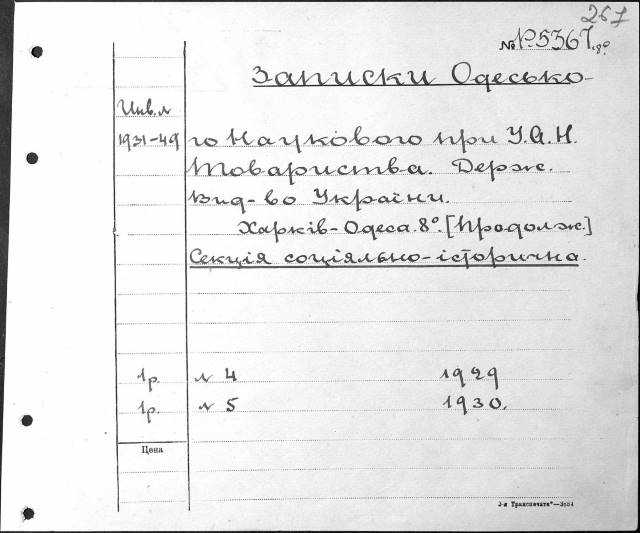 267
№ 105367.8°
Записки Одесько-
Инв.л
1931-49 го Наукового при У.А.Н.
Товариства. Держ.
Вид-во України.
Харків-Одеса. 8°. [Продолж.]
Секція соціяльно-історична.
1р. № 4 1929
1р. № 5 1930.
Цена